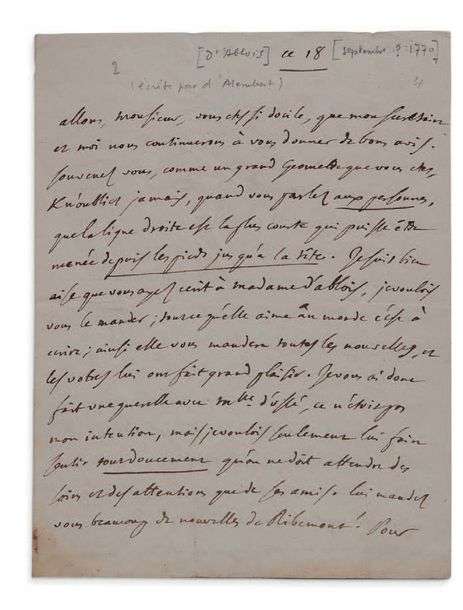 [D'Ablois] ce 18 [septembre ? 1770]
2
(écrite par d'Alembert)
allons, monsieur, vous etes si docile, que mon secretaire
et moi nous continuerons à vous donner de bons avis.
souvenez vous, comme un grand Geometre que vous etes,
et n'oubliez jamais, quand vous parlez aux personnes,
que la ligne droite est la plus courte qui puisse être
menée depuis les pieds jusqu'à la tête. Je suis bien
aise que vous ayez ecrit à madame d'ablois, je voulois
vous le mander; tout ce qu'elle aime au monde c'est à
ecrire; ainsi elle vous mandera toutes les nouvelles, et
les votres lui ont fait grand plaisir. Je vous ai donc
fait une querelle avec mlle d'ussé, ce n'étoit pas
mon intention, mais je voulois seulement lui faire
sentir tout doucement qu'on ne doit attendre des
soins et des attentions que de ses amis. lui mandez
vous beaucoup de nouvelles de Ribemont? Pour